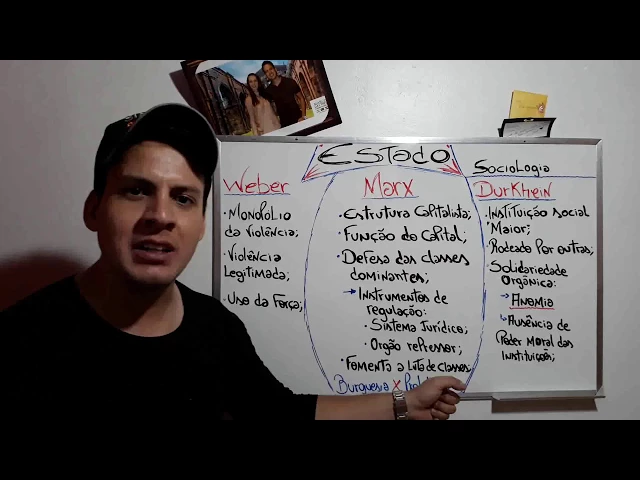 Estado
Sociologia
Weber
• Monopólio
da violência;
• Violência
Legitimada;
• Uso da Força;
Marx
• Estrutura Capitalista;
• Função do Capital;
• Defesa das classes
dominantes;
→ Instrumentos de
regulação:
• Sistema Jurídico;
• Orgão repressor;
• Fomenta a Luta de classes;
Burguesia X
Durkhein
• Instituição social
Maior;
• Rodeado por outras;
• Solidariedade
Orgânica:
↳ Anomia
↳ Ausência de
Poder Moral das
Instituições;